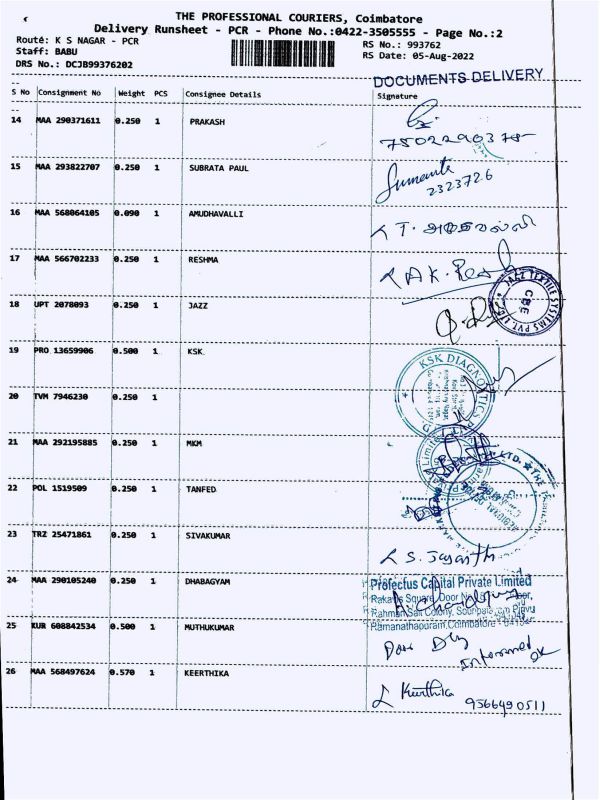 THE PROFESSIONAL COURIERS, Coimbatore
Delivery Runsheet - PCR - Phone No.:0422-3505555 - Page No.:2
Route: K S NAGAR - PCR RS No.: 993762
Staff: BABU RS Date: 05-Aug-2022
DRS No.: DCJB99376202
DOCUMENTS DELIVERY
S No Consignment No Weight PCS Consignee Details Signature
14 MAA 290371611 0.250 1 PRAKASH
7502290375
15 MAA 293822707 0.250 1 SUBRATA PAUL
2323726
16 MAA 568064105 0.090 1 AMUDHAVALLI
T. அமுதவல்லி
17 MAA 566702233 0.250 1 RESHMA
A.K. Resh
18 UPT 2078093 0.250 1 JAZZ
JAZZ TEXTILE SYSTEMS PVT. LTD.
CBE
19 PRO 13659906 0.500 1 KSK
KSK DIAGNOSTICS
20 TVM 7946230 0.250 1
21 MAA 292195885 0.250 1 MKM
22 POL 1519509 0.250 1 TANFED
LTD. ★ THE
23 TRZ 25471861 0.250 1 SIVAKUMAR
S. Jayanth
24 MAA 290105240 0.250 1 DHABAGYAM
Profectus Capital Private Limited
Square, Door No
Rahman Sait Colony,
Ramanathapuram, Coimbatore
25 KUR 608842534 0.500 1 MUTHUKUMAR
Door Dly
Informed
OK
26 MAA 568497624 0.570 1 KEERTHIKA
Keerthika 9566490511